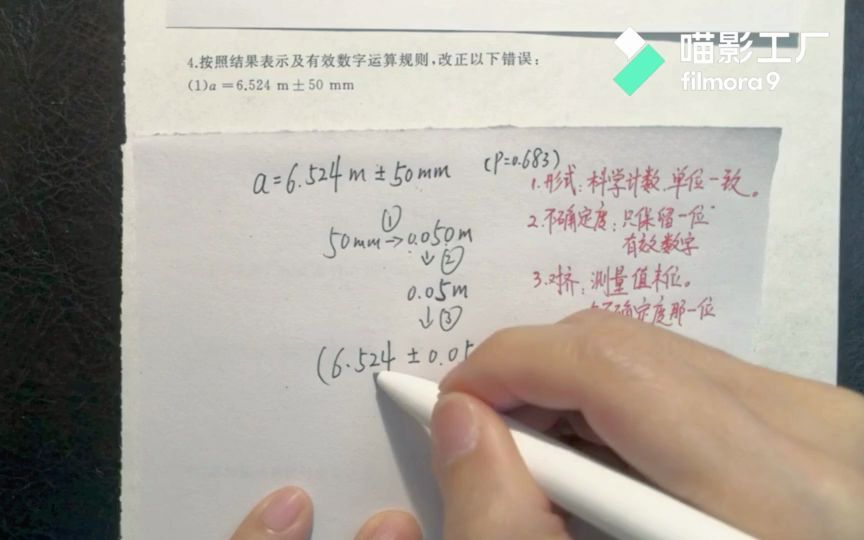 喵影工厂
filmora9
4.按照结果表示及有效数字运算规则,改正以下错误:
(1)a=6.524 m±50 mm
a=6.524 m ±50mm (P=0.683)
1.形式:科学计数、单位一致。
①
50mm→0.050m
2.不确定度:只保留一位
有效数字
↓②
0.05m
3.对挤:测量值末位。
↓③
不确定度那一位
(6.524 ± 0.05